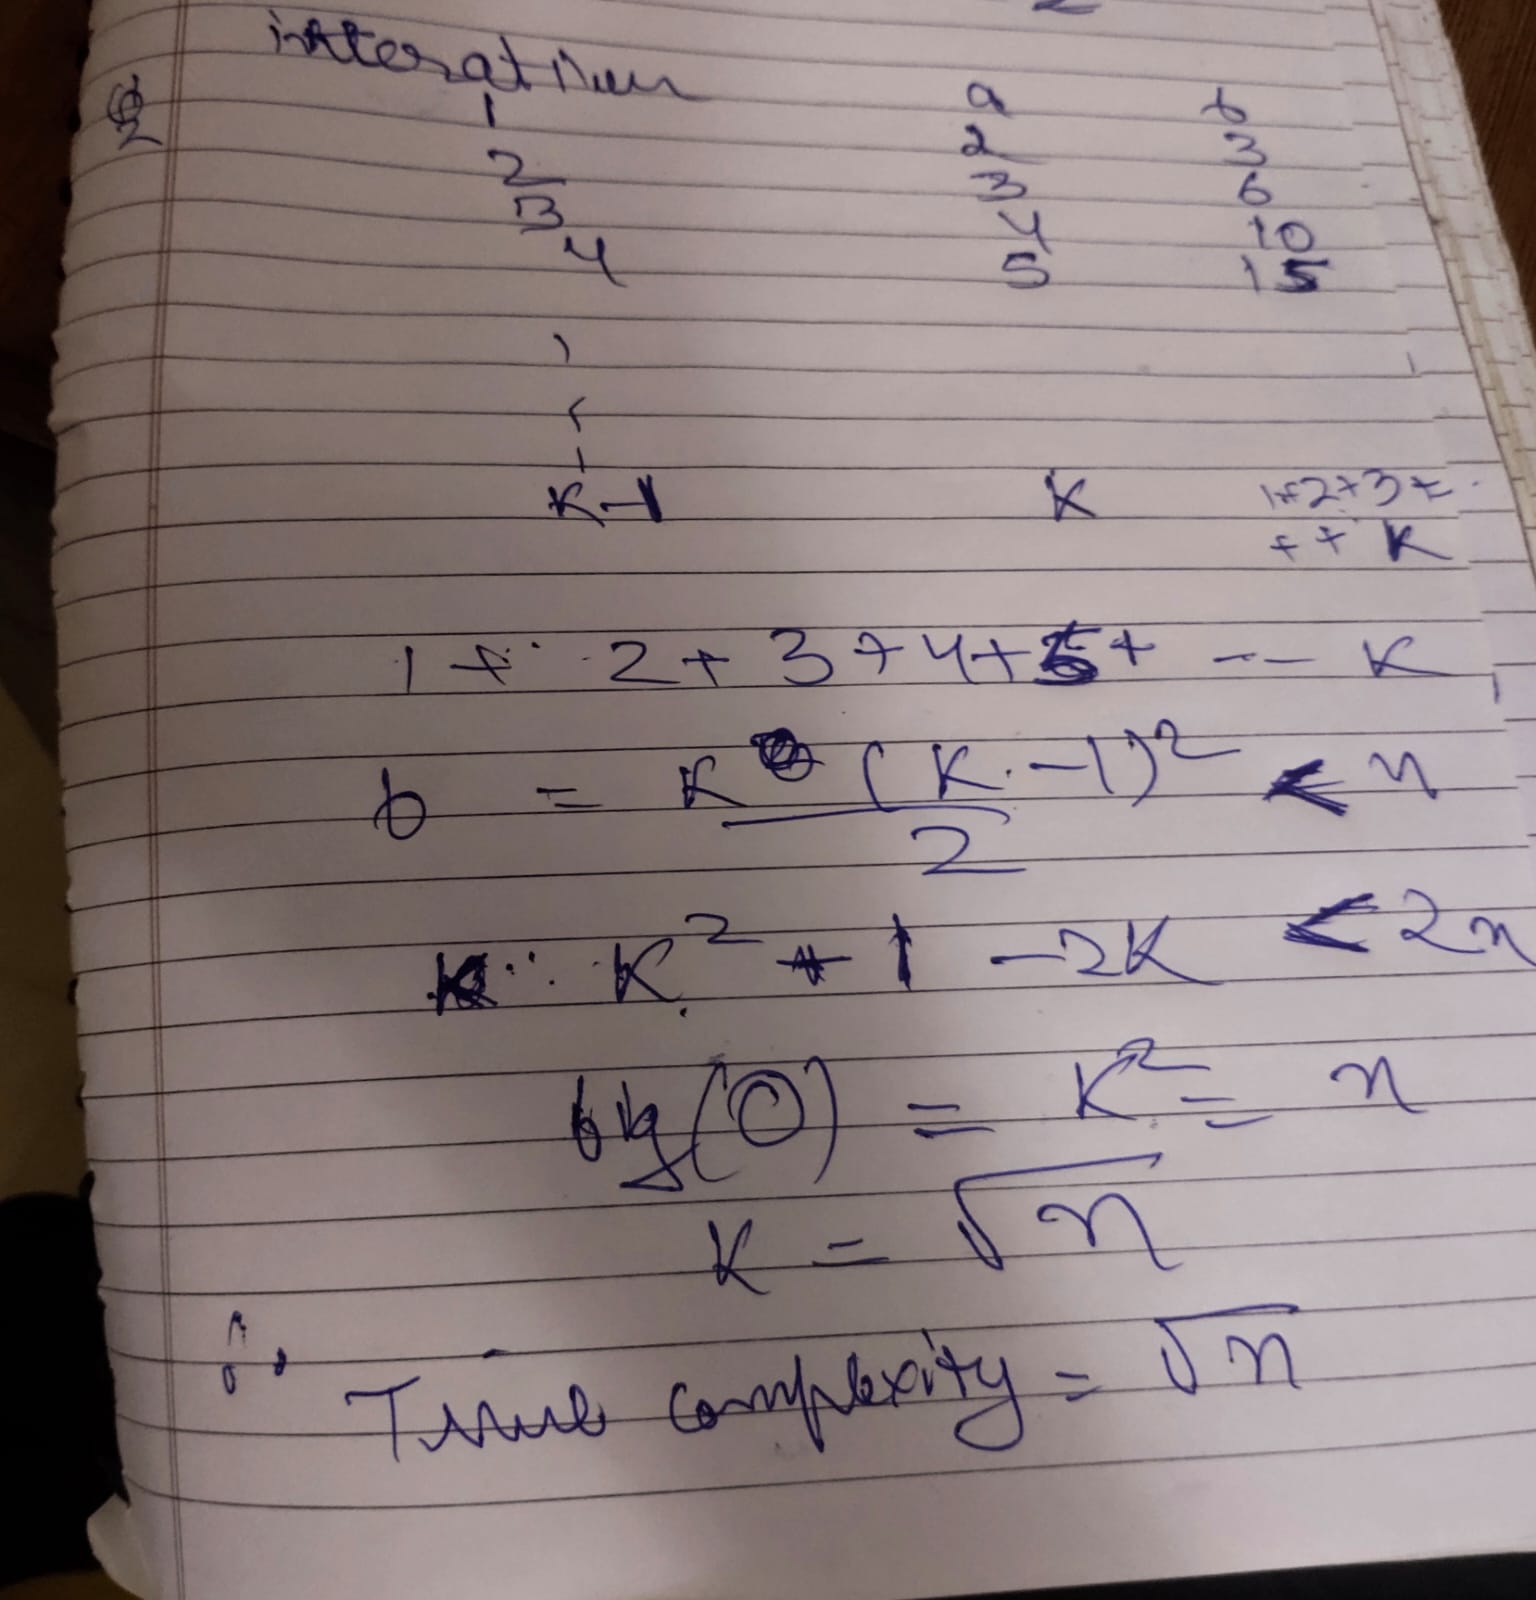 intteration a b
Q2 1 2 3
2 3 6
3 4 10
4 5 15
K-1 K 1+2+3+
+ + K
1 + 2 + 3 + 4 + 5 + -- K
b = K (K-1)² / 2 < n
K² + 1 - 2K < 2n
big(O) = K² = n
K = √n
∴ Time complexity = √n